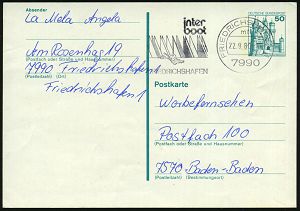 Absender:
La Mela Angela
Am Rosenhag 19
(Postfach oder Straße und Hausnummer)
7990 Friedrichshafen 1
(Postleitzahl) (Ort)
Friedrichshafen 1
inter
boot
FRIEDRICHSHAFEN
FRIEDRICHSHAFEN
22.9.80
7990
DEUTSCHE BUNDESPOST
50
Postkarte
Werbefernsehen
Postfach 100
(Postfach oder Straße und Hausnummer)
7570 Baden-Baden
(Postleitzahl) (Bestimmungsort)